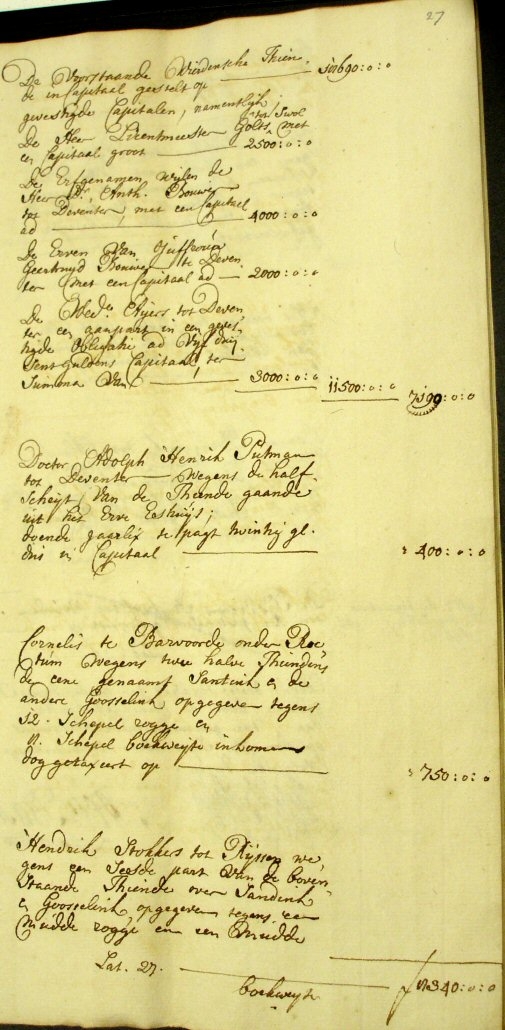 27
De Voorstaande Wierdensche Thien
de in Capitaal gestelt op 18690:0:0
gevestigde Capitalen, namentlijk
De Heer Licentmeester Golts tot Swol met
en Capitaal groot 2500:0:0
De Erfgenamen wijlen de
Heer Dr. Anth. Bouwer
tot Deventer, met een Capitaal
ad 4000:0:0
De Erven van Juffrouw
Geertruyd Bouwer te Deven
ter met een Capitaal ad 2000:0:0
De Wed:e tot Deven
ter een aanpart in een geves-
tigde Obligatie ad Vijf duij-
sent guldens Capitaal ter
Summa van 3000:0:0 11500:0:0 7190:0:0
Doctor Adolph Henrik Putman
tot Deventer wegens de half-
scheyt van de Thiende gaande
uit het Erve Eshuijs;
doende jaarlix te pagt twintig gl.
dus in Capitaal 400:0:0
Cornelis te Barvoorde onder Rec
tum wegens twee halve Thiendens
de eene genaamt Santink en de
andere Goosselink opgegeven tegens
12. Schepel rogge en
Schepel boekweijte inkomen
dog getaxeert op 750:0:0
Hendrik Stokkers tot Rijssen we
gens een Seesde part van de boven-
staande Thiende over Sandink
en Goosselink, opgegeven tegens een
Mudde rogge en een Mudde
Lat. 27. 340:0:0
boekweyte